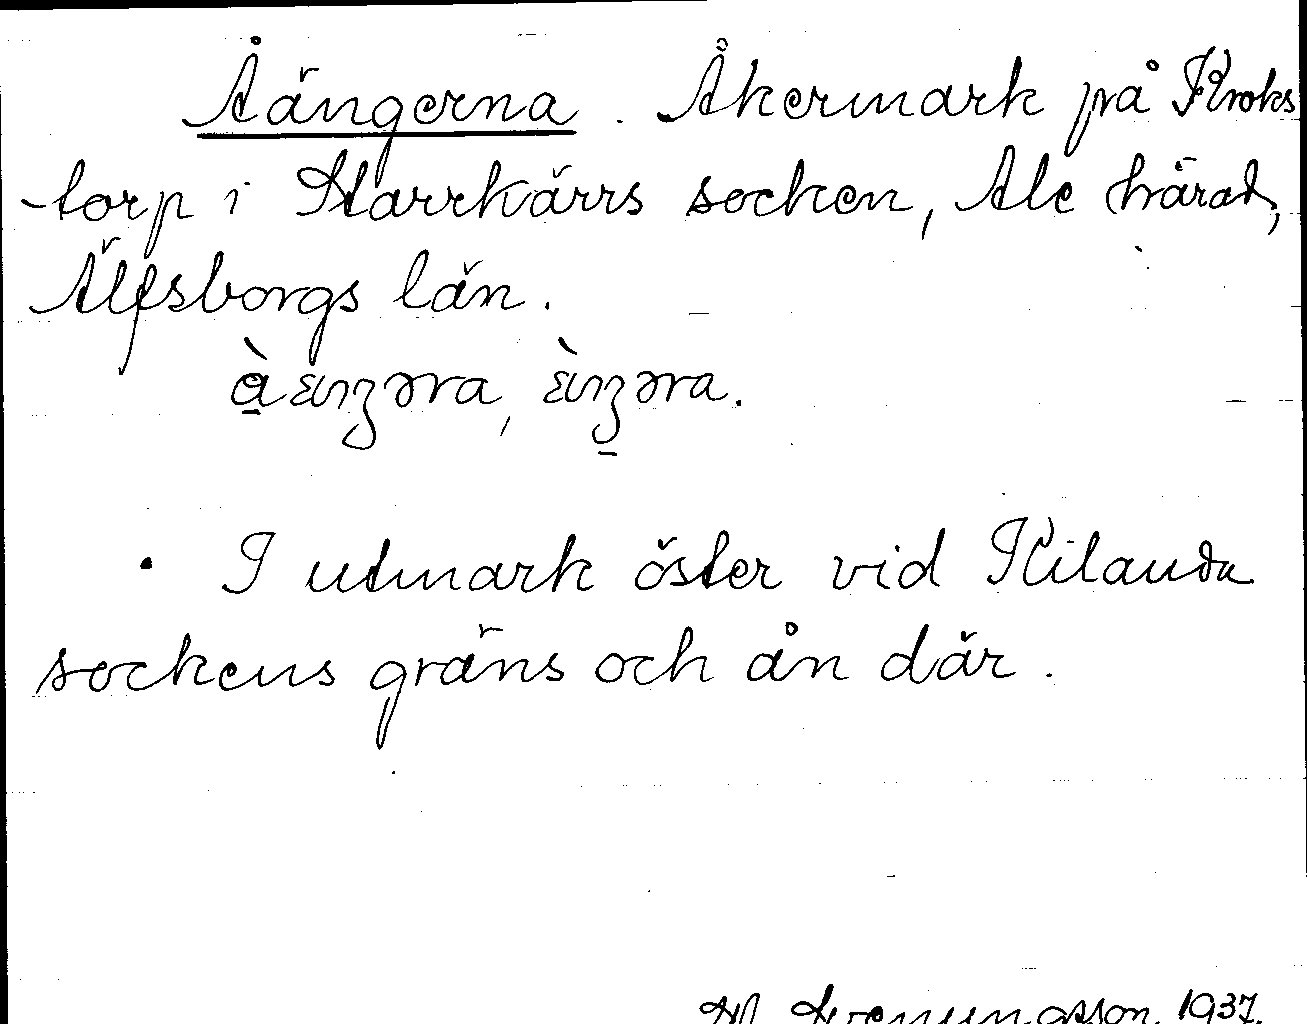 Åängerna. Åkermark på Kroks
-torp i Starrkärrs socken, Ale härad,
Älfsborgs län.
I utmark öster vid Kilanda
sockens gräns och ån där.
1937.